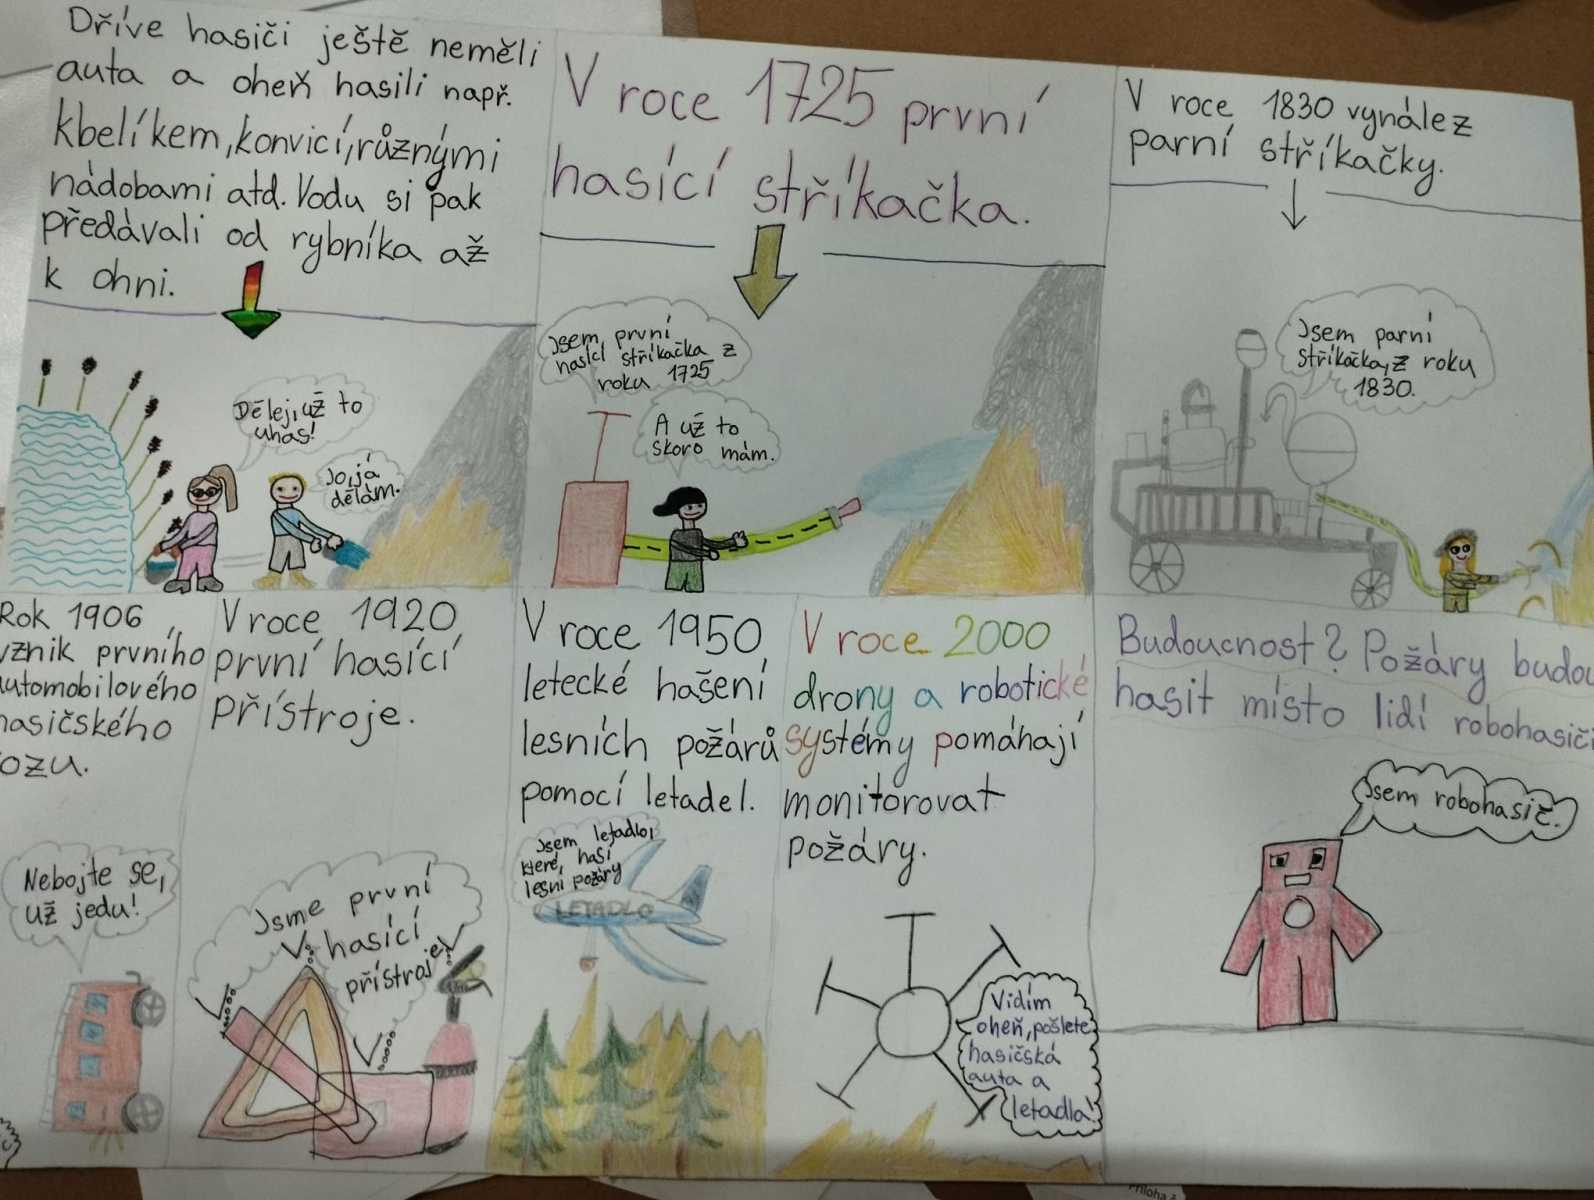 Dříve hasiči ještě neměli
auta a oheň hasili např.
kbelíkem, konvicí, různými
nádobami atd. Vodu si pak
předávali od rybníka až
k ohni.
Dělej, už to
uhas!
Jo, já
dělám.
V roce 1725 první
hasící stříkačka.
Jsem první
hasící stříkačka z
roku 1725
A už to
skoro mám.
V roce 1830 vynález
parní stříkačky.
Jsem parní
stříkačka, z roku
1830.
Rok 1906
vznik prvního
automobilového
hasičského
ozu.
Nebojte se,
už jedu!
V roce 1920
první hasící
přístroje.
Jsme první
hasící
přístroje
V roce 1950
letecké hašení
lesních požárů
pomocí letadel.
Jsem letadlo,
které, hasí
lesní požáry
LETADLO
V roce 2000
drony a robotické
systémy pomáhají
monitorovat
požáry.
Vidím
oheň, pošlete
hasičská
auta a
letadla!
Budoucnost? Požáry budou
hasit místo lidí robohasiči
Jsem robohasič.